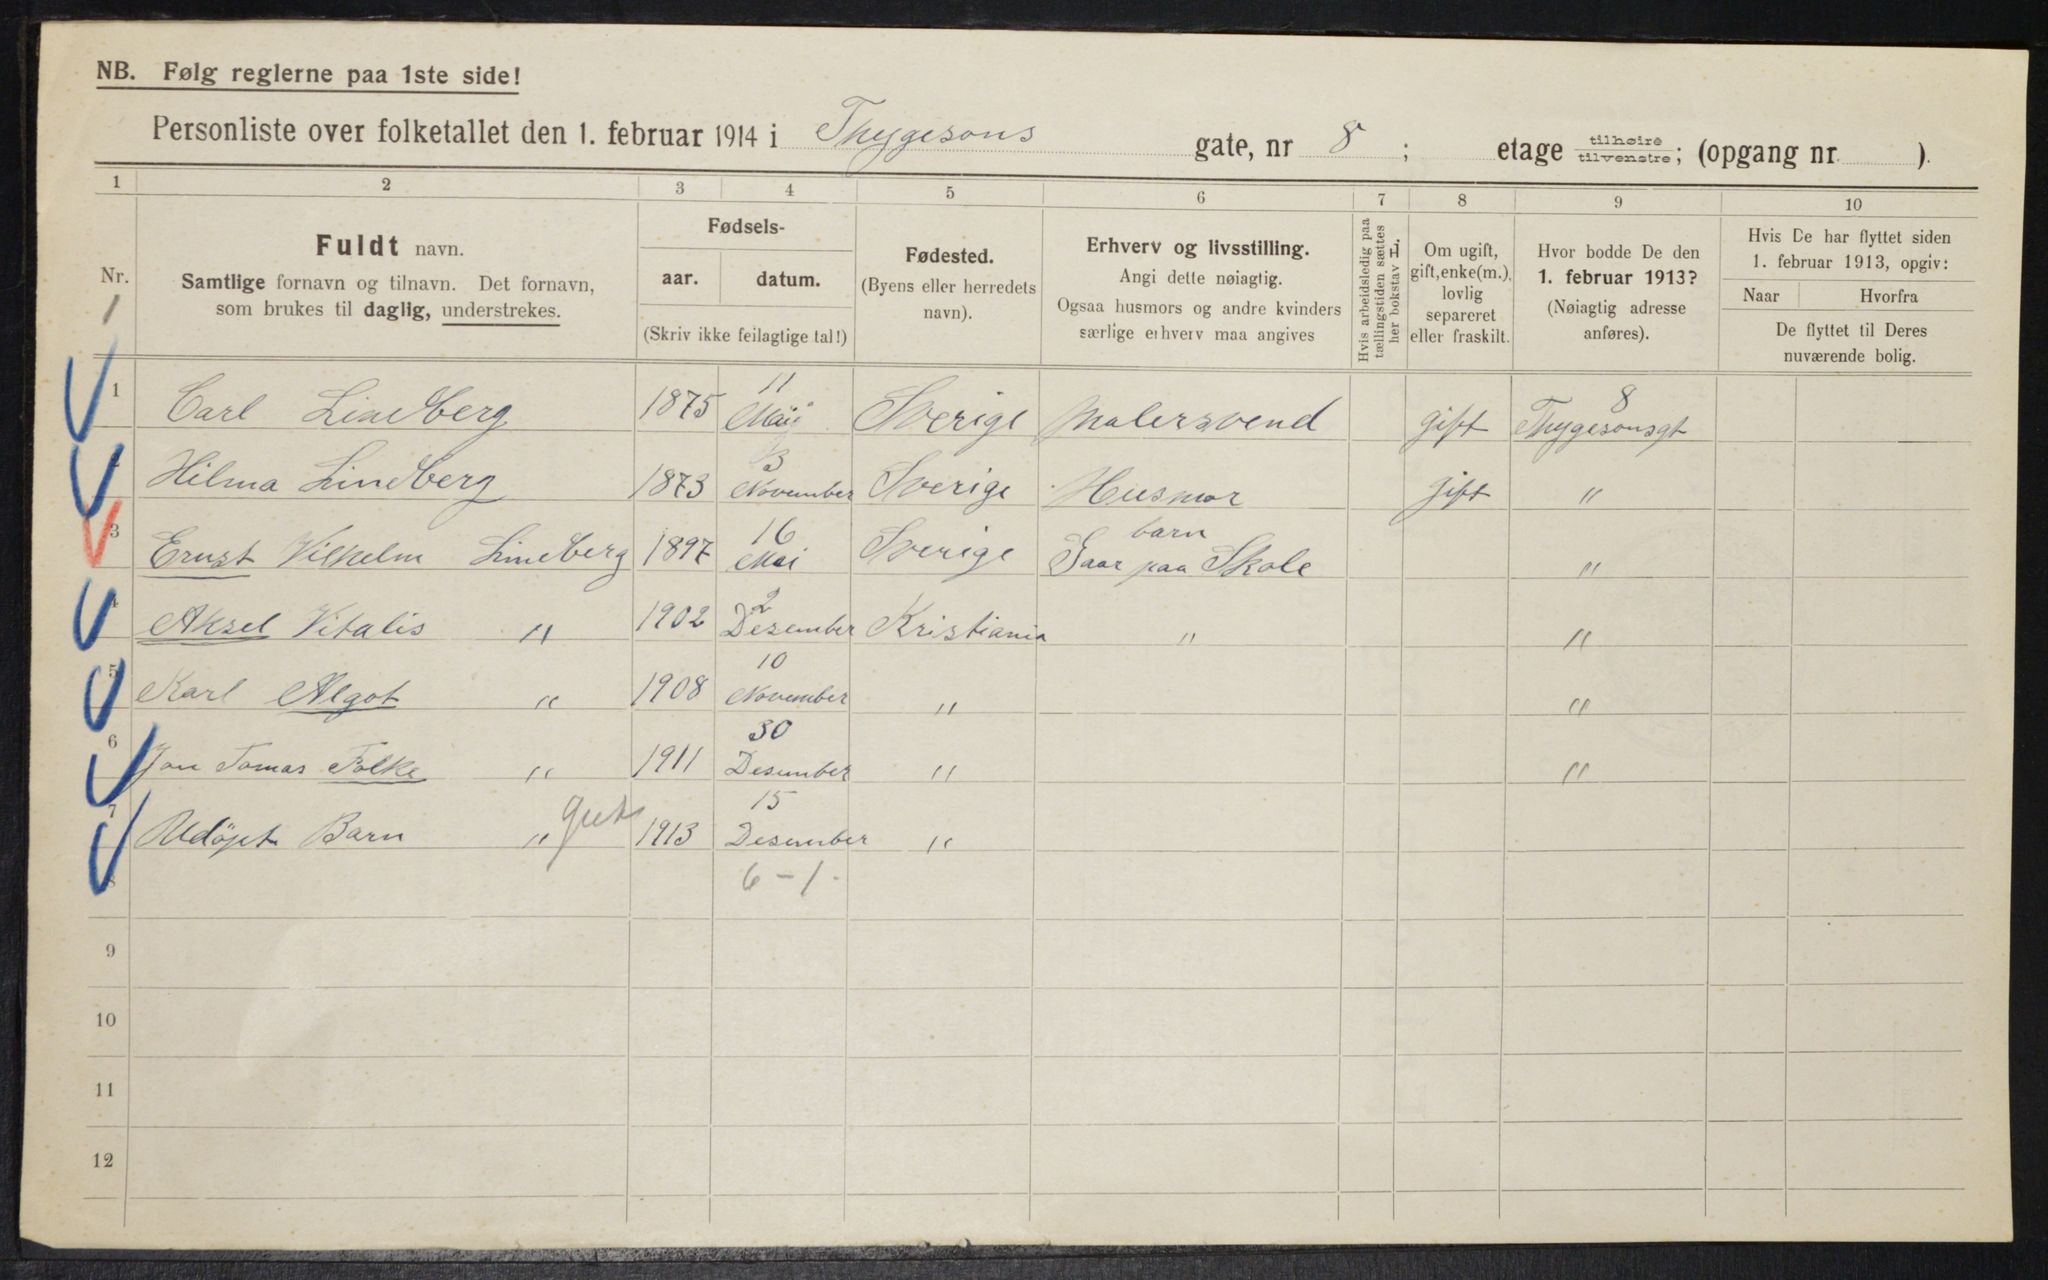 NB. Følg reglerne paa 1ste side!
Personliste over folketallet den 1. februar 1914 i Thygesons gate, nr 8 ; etage tilhøire tilvenstre; (opgang nr. ).
1 2 3 4 5 6 7 8 9 10
Nr.
Fuldt navn.
Samtlige fornavn og tilnavn. Det fornavn,
som brukes til daglig, understrekes.
Fødsels-
aar. datum.
(Skriv ikke feilagtige tal!)
Fødested.
(Byens eller herredets
navn).
Erhverv og livsstilling.
Angi dette nøiagtig.
Ogsaa husmors og andre kvinders
særlige erhverv maa angives
Hvis arbeidsledig paa
tællingstiden sættes
her bokstav L
Om ugift,
gift, enke(m.),
lovlig
separeret
eller fraskilt.
Hvor bodde De den
1. februar 1913?
(Nøiagtig adresse
anføres).
Hvis De har flyttet siden
1. februar 1913, opgiv:
Naar Hvorfra
De flyttet til Deres
nuværende bolig.
1 Carl Lindberg 1875 11 Maij Sverige Malersvend gift 8 Thygesonsgt
2 Hilma Lindberg 1873 3 November Sverige Husmor gift "
3 Ernst Vilhelm Lindberg 1897 16 Mai Sverige barn Gaar paa Skole "
4 Aksel Vitalis " 1902 2 Dezember Kristiania " "
5 Karl Algot " 1908 10 November " "
6 Jon Tomas Folke " 1911 30 Desember " "
7 Udöpt Barn " gut 1913 15 Desember "
8 6-1.
9
10
11
12